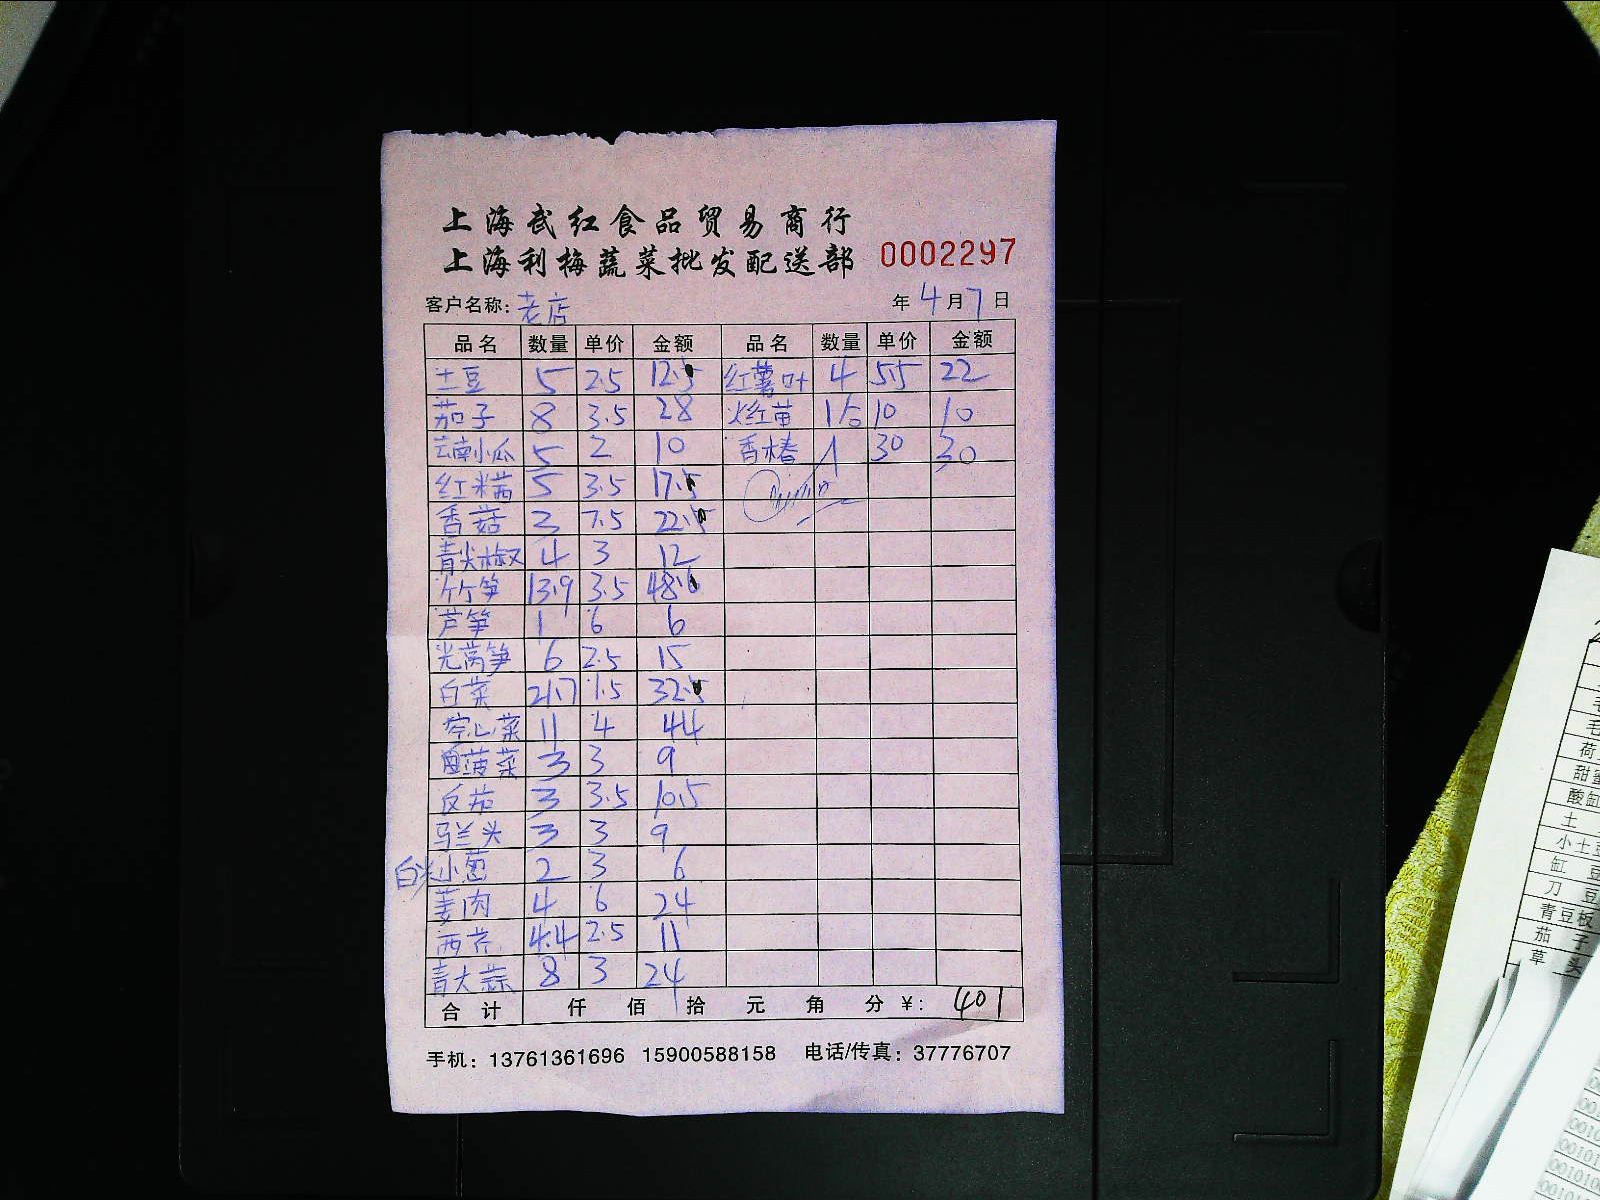 上海武红食品贸易商行
上海利梅蔬菜批发配送部 0002297
客户名称: 老店 年 4 月 7 日
品名 数量 单价 金额 品名 数量 单价 金额
土豆 5 2.5 12.5 红薯叶 4 5.5 22
茄子 8 3.5 28 火红苗 1合 10 10
云南小瓜 5 2 10 香椿 1 30 30
红米苋 5 3.5 17.5
香菇 3 7.5 22.5
青尖椒 4 3 12
竹笋 13.9 3.5 48.6
芦笋 1 6 6
光莴笋 6 2.5 15
白菜 21.7 1.5 32.5
空心菜 11 4 44
菠菜 3 3 9
反茄 3 3.5 10.5
马兰头 3 3 9
白米小葱 2 3 6
姜肉 4 6 24
西芹 4.4 2.5 11
青大蒜 8 3 24
合计 仟 佰 拾 元 角 分 ¥: 401
手机: 13761361696 15900588158 电话/传真: 37776707
毛
荷
甜蜜
酸缸
土
小土豆
缸 豆
刀 豆
青豆板
茄 子
草 头